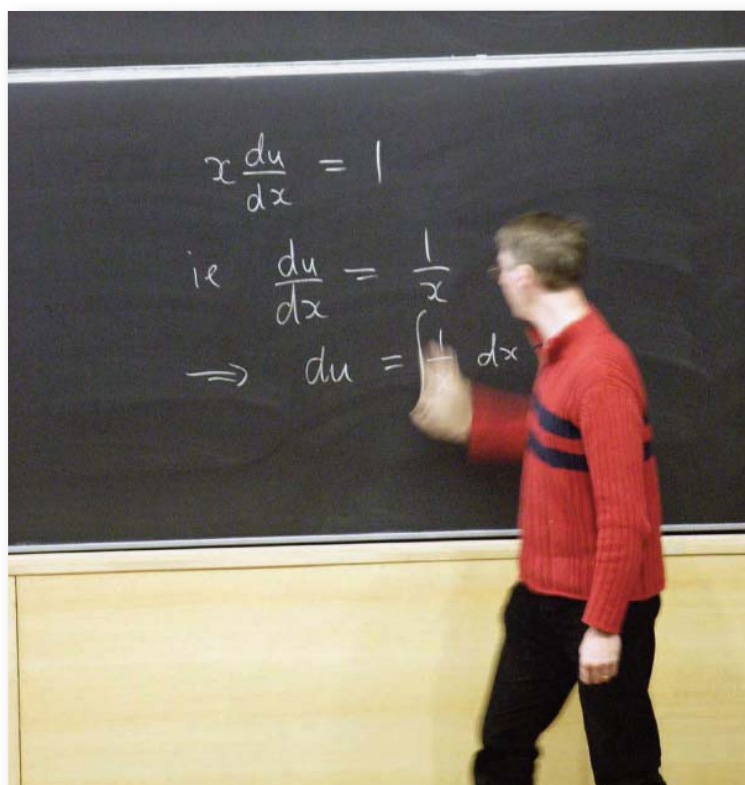 x du/dx = 1
ie du/dx = 1/x
⟹ du = ∫ 1/x dx